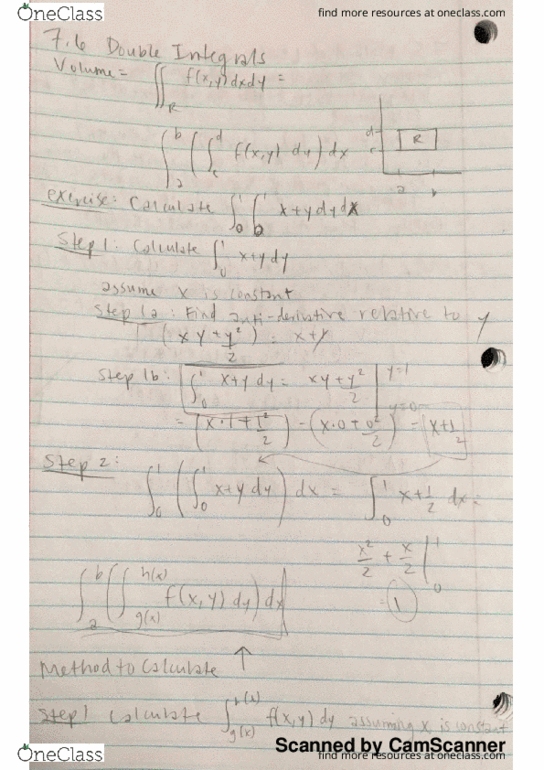 OneClass
find more resources at oneclass.com
7.6 Double Integrals
Volume = ∬_R f(x,y) dxdy =
∫_a^b (∫_c^d f(x,y) dy) dx
d
c
R
a
b
exercise: Calculate ∫_0^1 ∫_0^1 x+y dy dx
Step 1: Calculate ∫_0^1 x+y dy
assume x is constant
Step 1a: Find anti-derivative relative to y
(xy + y²/2) : x+y
Step 1b: ∫_0^1 x+y dy = xy + y²/2 |_{y=0}^{y=1}
= (x·1 + 1²/2) - (x·0 + 0²/2) = x+1/2
Step 2:
∫_0^1 (∫_0^1 x+y dy) dx = ∫_0^1 x+1/2 dx =
x²/2 + x/2 |_0^1
= 1
∫_a^b (∫_{g(x)}^{h(x)} f(x,y) dy) dx
Method to Calculate ↑
Step 1 Calculate ∫_{g(x)}^{h(x)} f(x,y) dy assuming x is constant
Scanned by CamScanner
OneClass
find more resources at oneclass.com